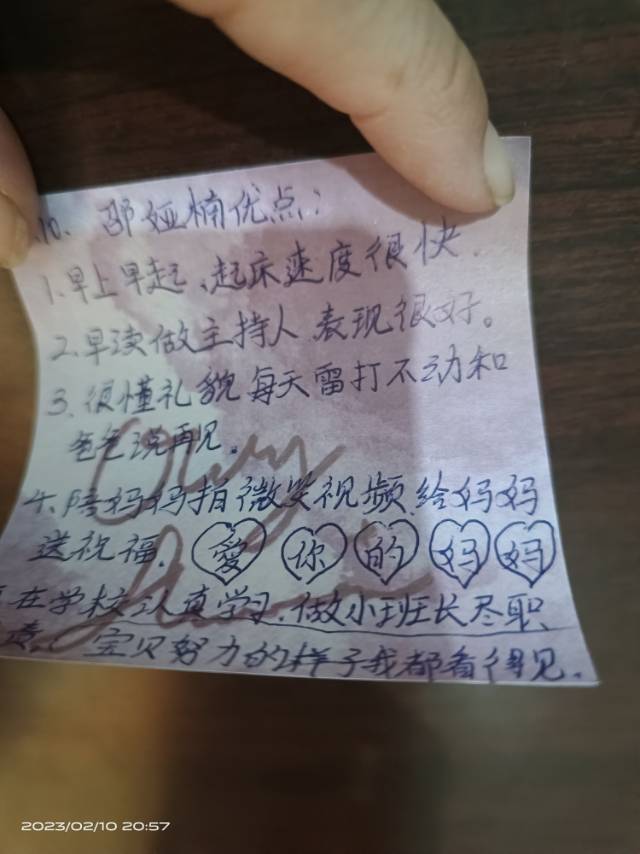 .10. 邵娅楠优点:
1.早上早起、起床速度很快.
2.早读做主持人表现很好。
3.很懂礼貌每天雷打不动和
爸爸说再见。
4.陪妈妈拍微笑视频给妈妈
送祝福. 愛你的妈妈
在学校认真学习.做小班长尽职
责. 宝贝努力的样子我都看得见.
2023/02/10 20:57